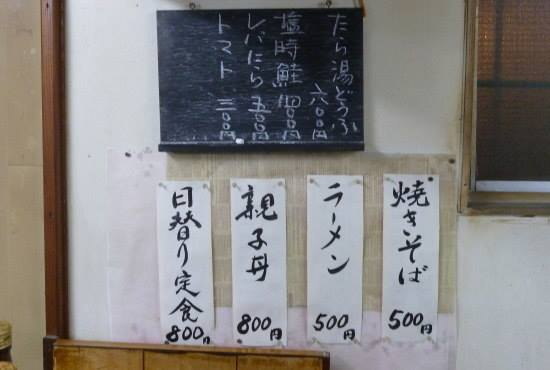 たら湯どうふ
六〇〇円
塩時鮭 四〇〇円
レバにら 五〇〇円
トマト 三〇〇円
焼きそば 500円
ラーメン 500円
親子丼 800円
日替り定食 800円